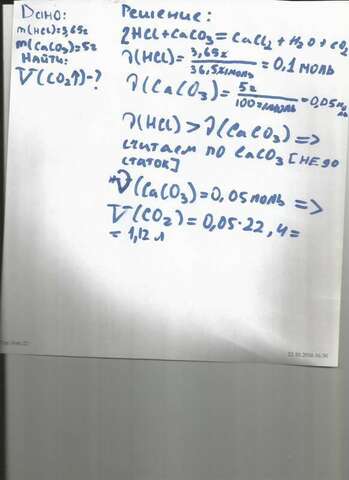 Дано:
m(HCl)=3,65г
m(CaCO₃)=5г
Найти:
V(CO₂↑)-?
Решение:
2HCl+CaCO₃=CaCl₂+H₂O+CO₂
ν(HCl)=3,65г/36,5г/моль=0,1моль
ν(CaCO₃)=5г/100г/моль=0,05
ν(HCl)>ν(CaCO₃)=>
считаем по CaCO₃[недо
статок]
ν(CaCO₃)=0,05моль=>
V(CO₂)=0,05·22,4=
=1,12л